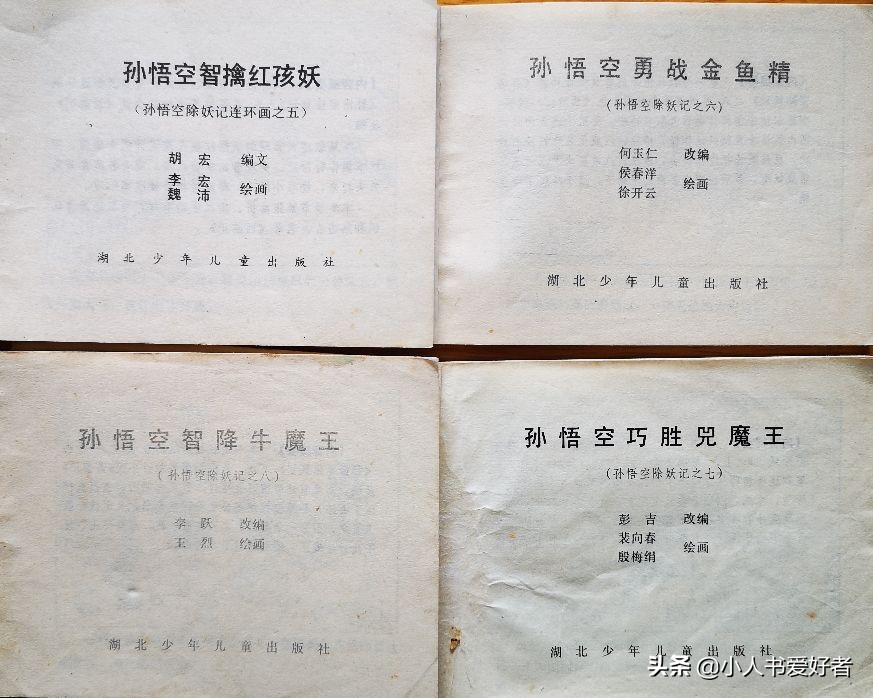 孙悟空智擒红孩妖
（孙悟空除妖记连环画之五）
胡宏 编文
李宏
魏沛 绘画
湖北少年儿童出版社
孙悟空勇战金鱼精
（孙悟空除妖记之六）
何玉仁 改编
侯春洋
徐开云 绘画
湖北少年儿童出版社
孙悟空智降牛魔王
（孙悟空除妖记之八）
李跃 改编
王烈 绘画
湖北少年儿童出版社
孙悟空巧胜兕魔王
（孙悟空除妖记之七）
彭吉 改编
裴向春
殷梅绢 绘画
湖北少年儿童出版社
头条 @小人书爱好者